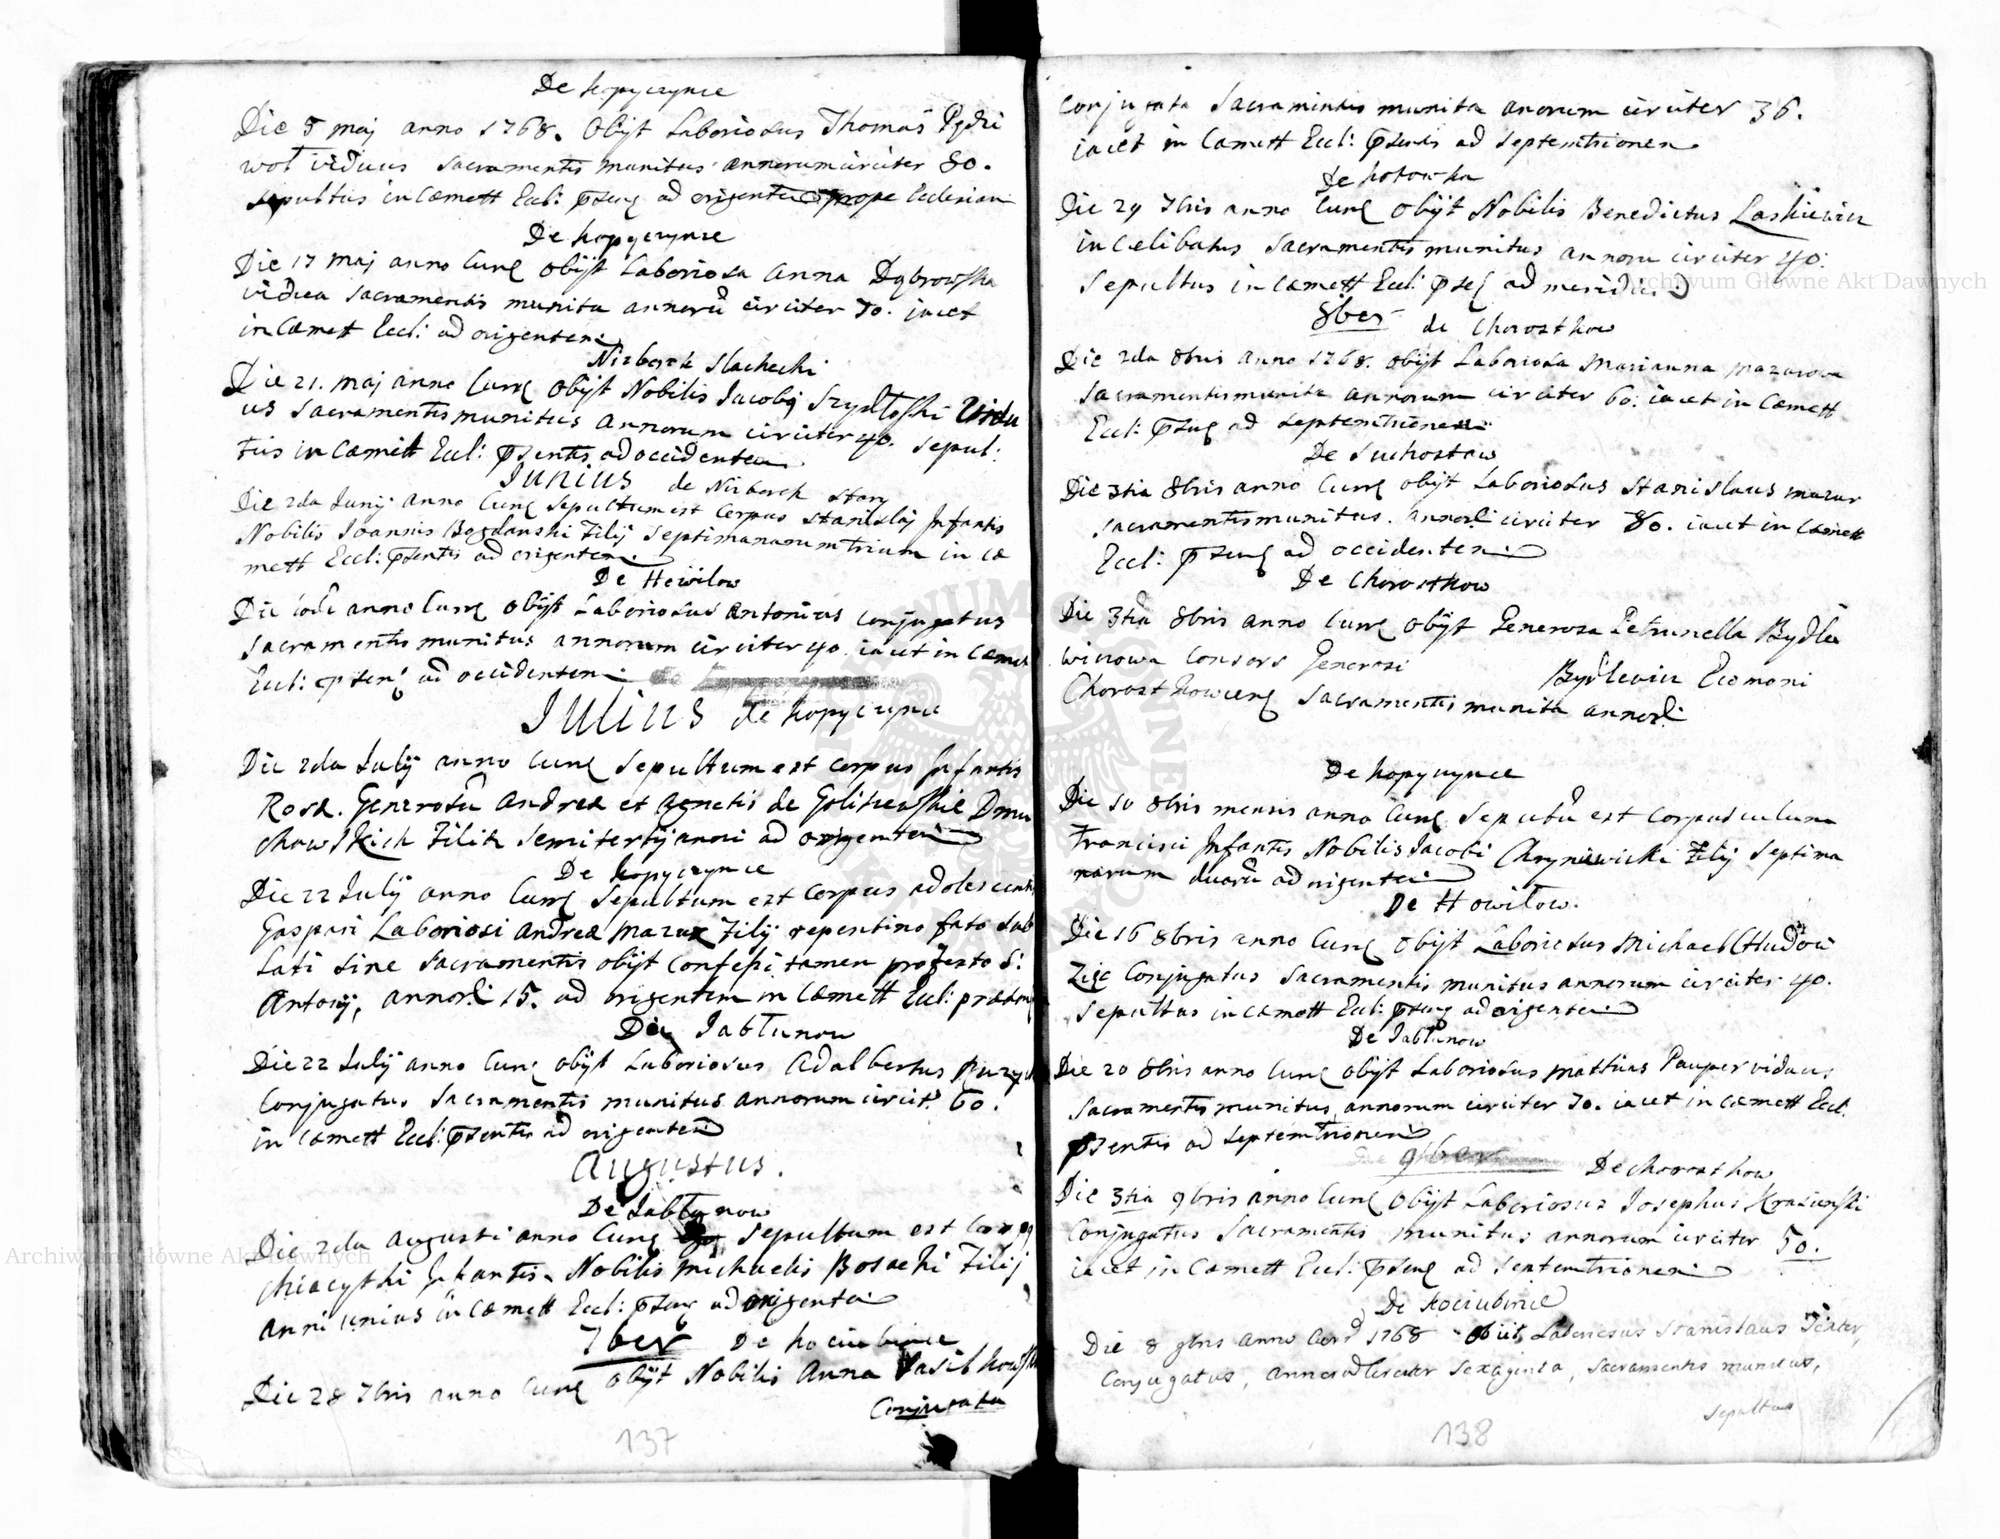 De Kopyczynce
Die 8 maij anno 1768. Obijt Laboriosus Thomas Pędzi
woł viduus sacramentis munitus annorum circiter 80.
sepultus in Cæmett Eccl: ad origentem prope Ecclesiam
De Kopyczynce
Die 17 maij anno Curr obijt Laboriosa Anna Dąbrowska
vidua sacramentis munita annorũ circiter 70. iacet
in Cæmett Eccl: ad origentem
Nizborck Slachecki
Die 21. maij anno Curr obijt Nobilis Jacobq Szydłoski Vidu
us sacramentis munitus annorum circiter 40. sepul:
tus in Cæmett Eccl: pszentis ad occidentem
Junius de Nizborck Stary
Die 2da Junij anno Curr sepultum est Corpus Stanislaj Infantis
Nobilis Joannis Bogdanski Filij septimanarum trium in Cæ
mett Eccl: pszentis ad origentem
De Howilow
Die anno Curr obijt Laboriosus Antonius Conjugatus
sacramentis munitus annorum circiter 40 iacet in Cæmet
Eccl: ad occidentem
Julius de Kopyczynce
Die 2da Julij anno Curr sepultum est corpus Infantis
Rosæ. Generosũ Andreæ et Agnetis de Dmu
chowskich Filiæ semitertij anni ad origentem
De Kopyczynce
Die 22 Julij anno Curr sepultum est corpus adolescentis
Gaspari Laboriosi Andreæ Mazur Filij repentino fato sub
lati sine sacramentis obijt confessi tamen pro festo S:
Antonij, 15. ad origentem in Cæmett Eccl:
De Jabłunow
Die 22 Julij anno Curr obijt Laboriosus Adalbertus
Conjugatus sacramentis munitus annorum circit: 60.
in Cæmett Eccl: pszentis ad origentem
Augustus.
De Jabłunow
Die 2da Augusti anno Curr sepultum est
Infantis Nobilis Michaelis Bosacki Filij
anni unius in Cæmett Eccl: ad origentem
7ber De Kociubince
Die 28 7bris anno Curr obijt Nobilis Anna
Conjugata
137
Conjugata Sacramentis munita anorum circiter 36.
iacet in Cæmett Eccl: pszentis ad septemtrionem
De Kotowka
Die 29 7bris anno Curr obijt Nobilis Benedictus Laskiewicz
in Celibatus sacramentis munitus annorũ circiter 40.
sepultus in Cæmett Eccl: ad meridiem
8ber de Chorostkow
Die 2da 8bris anno 1768. obijt Laboriosa Marianna Mazurowa
sacramentis munita annorum circiter 60: iacet in Cæmett
Eccl: ad septemtrionem
De Suchostaw
Die 3tia 8bris anno Curr obijt Laboriosus Stanislaus mazur
sacramentis munitus. circiter 80. iacet in Cæmett
Eccl: ad occidentem
De Chorostkow
Die 3tia 8bris anno Curr obijt Generosa Petrunella Bydle
wiczowa Consors Generosi Bydlewicz
sacramentis munita
De Kopyczynce
Die 10 8bris mensis anno Curr sepultũ est Corpusculum
Francisci Infantis Nobilis Jacobi Chryniewicki Filij septima
narum duarũ ad origentem
De Howiłow.
Die 16 8bris anno Curr obijt Laboriosus Michael
Conjugatus sacramentis munitus annorum circiter 40.
sepultus in Cæmett Eccl: ad origentem
De Jabłunow
Die 20 8bris anno Curr obijt Laboriosus Matthias Pauper viduus
sacramentis munitus, annorum circiter 70. iacet in Cæmett Eccl.
pszentis ad septemtrionem
9ber De Chorostkow
Die 3tia 9bris anno Curr obijt Laboriosus Josephus Krasiewski
Conjugatus sacramentis munitus annorum circiter 50.
iacet in Cæmett Eccl: ad septemtrionem
De Kociubince
Die 8 9bris anno 1768 obiit Laboriosus Stanislaus Texter,
Conjugatus, circiter sexaginta, sacramentis munitus,
sepultus
138
Archiwum Główne Akt Dawnych
Archiwum Główne Akt Dawnych